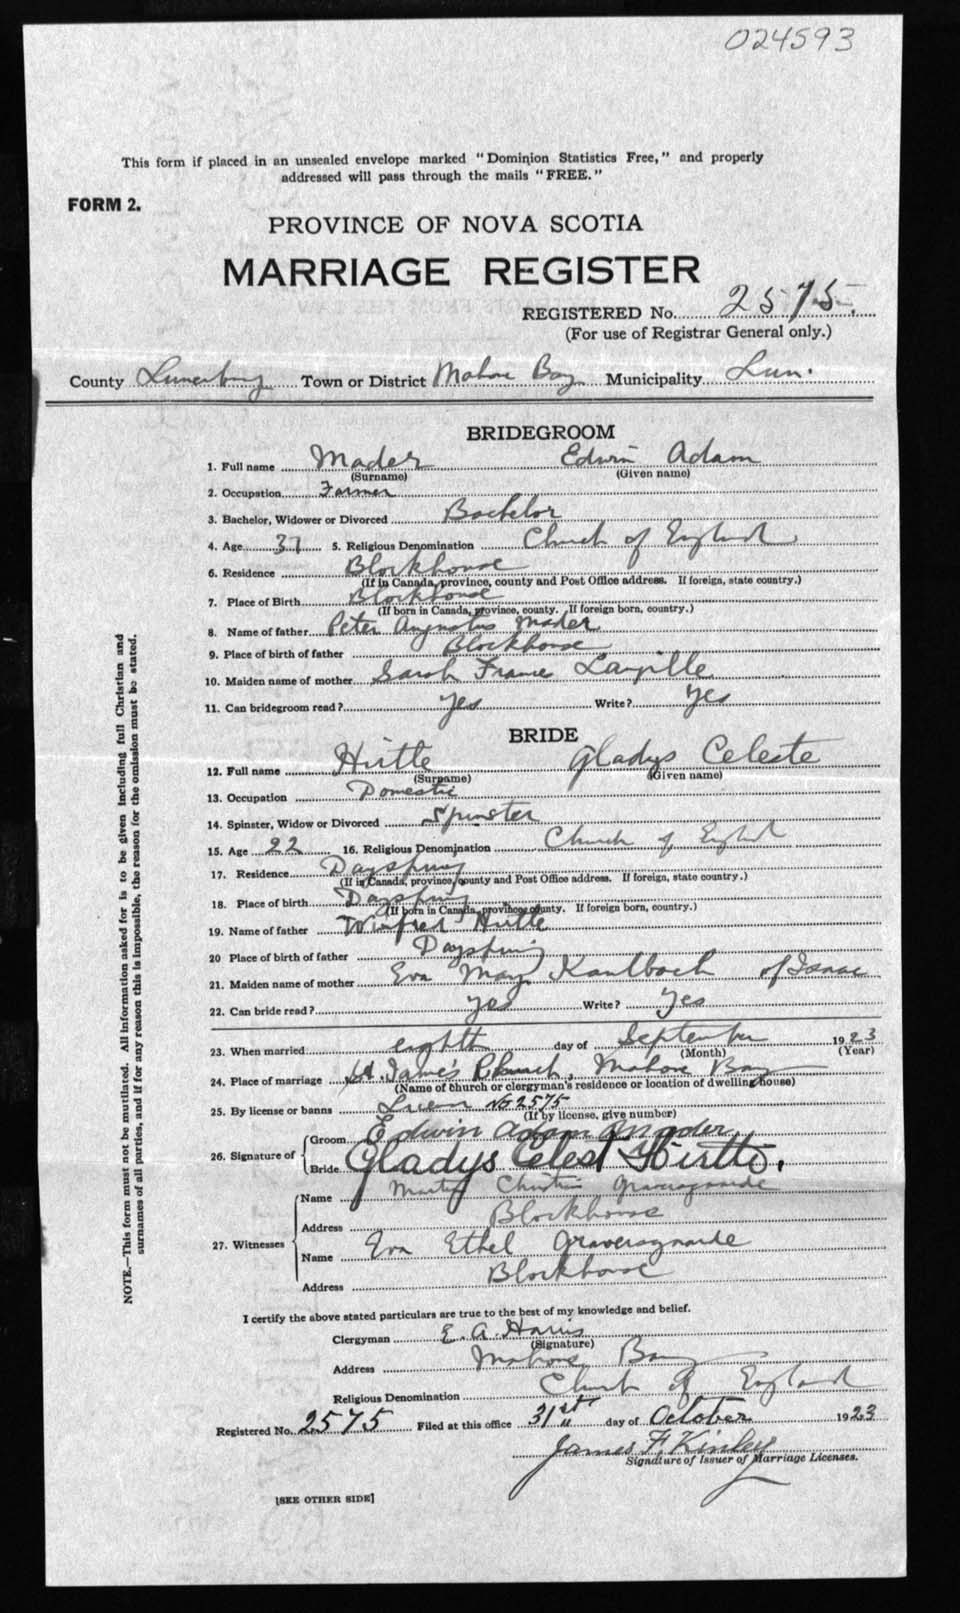 024593
This form if placed in an unsealed envelope marked "Dominion Statistics Free," and properly
addressed will pass through the mails "FREE."
FORM 2.
PROVINCE OF NOVA SCOTIA
MARRIAGE REGISTER
REGISTERED No. 2575.
(For use of Registrar General only.)
County Lunenburg Town or District Mahone Bay Municipality Lun.
BRIDEGROOM
1. Full name Mader Edwin Adam
(Surname) (Given name)
2. Occupation Farmer
3. Bachelor, Widower or Divorced Bachelor
4. Age 37 5. Religious Denomination Church of England
6. Residence Blockhouse
(If in Canada, province, county and Post Office address. If foreign, state country.)
7. Place of Birth Blockhouse
(If born in Canada, province, county. If foreign born, country.)
8. Name of father Peter Augustus Mader
9. Place of birth of father Blockhouse
10. Maiden name of mother Sarah Frances Langille
11. Can bridegroom read? yes Write? yes
BRIDE
12. Full name Hirtle Gladys Celeste
(Surname) (Given name)
13. Occupation Domestic
14. Spinster, Widow or Divorced Spinster
15. Age 22 16. Religious Denomination Church of England
17. Residence Dayspring
(If in Canada, province, county and Post Office address. If foreign, state country.)
18. Place of birth Dayspring
(If born in Canada, province, county. If foreign born, country.)
19. Name of father Winfred Hirtle
20 Place of birth of father Dayspring
21. Maiden name of mother Eva May Kaulbach of Isaac
22. Can bride read? yes Write? yes
23. When married eighth day of September 1923
(Month) (Year)
24. Place of marriage St. James's Church, Mahone Bay
(Name of church or clergyman's residence or location of dwelling house)
25. By license or banns No 2575
(If by license, give number)
26. Signature of Groom Edwin Adam Mader
Bride Gladys Celest Hirtle.
27. Witnesses
Name Christian Graversgaarde
Address Blockhouse
Name Eva Ethel Graversgaarde
Address Blockhouse
I certify the above stated particulars are true to the best of my knowledge and belief.
Clergyman E. A. Harris
(Signature)
Address Mahone Bay
Religious Denomination Church of England
Registered No. 2575 Filed at this office 31st day of October 1923
James F. Kinley
Signature of Issuer of Marriage Licenses.
[SEE OTHER SIDE]
NOTE.—This form must not be mutilated. All information asked for is to be given including full Christian and
surnames of all parties, and if for any reason this is impossible, the reason for the omission must be stated.